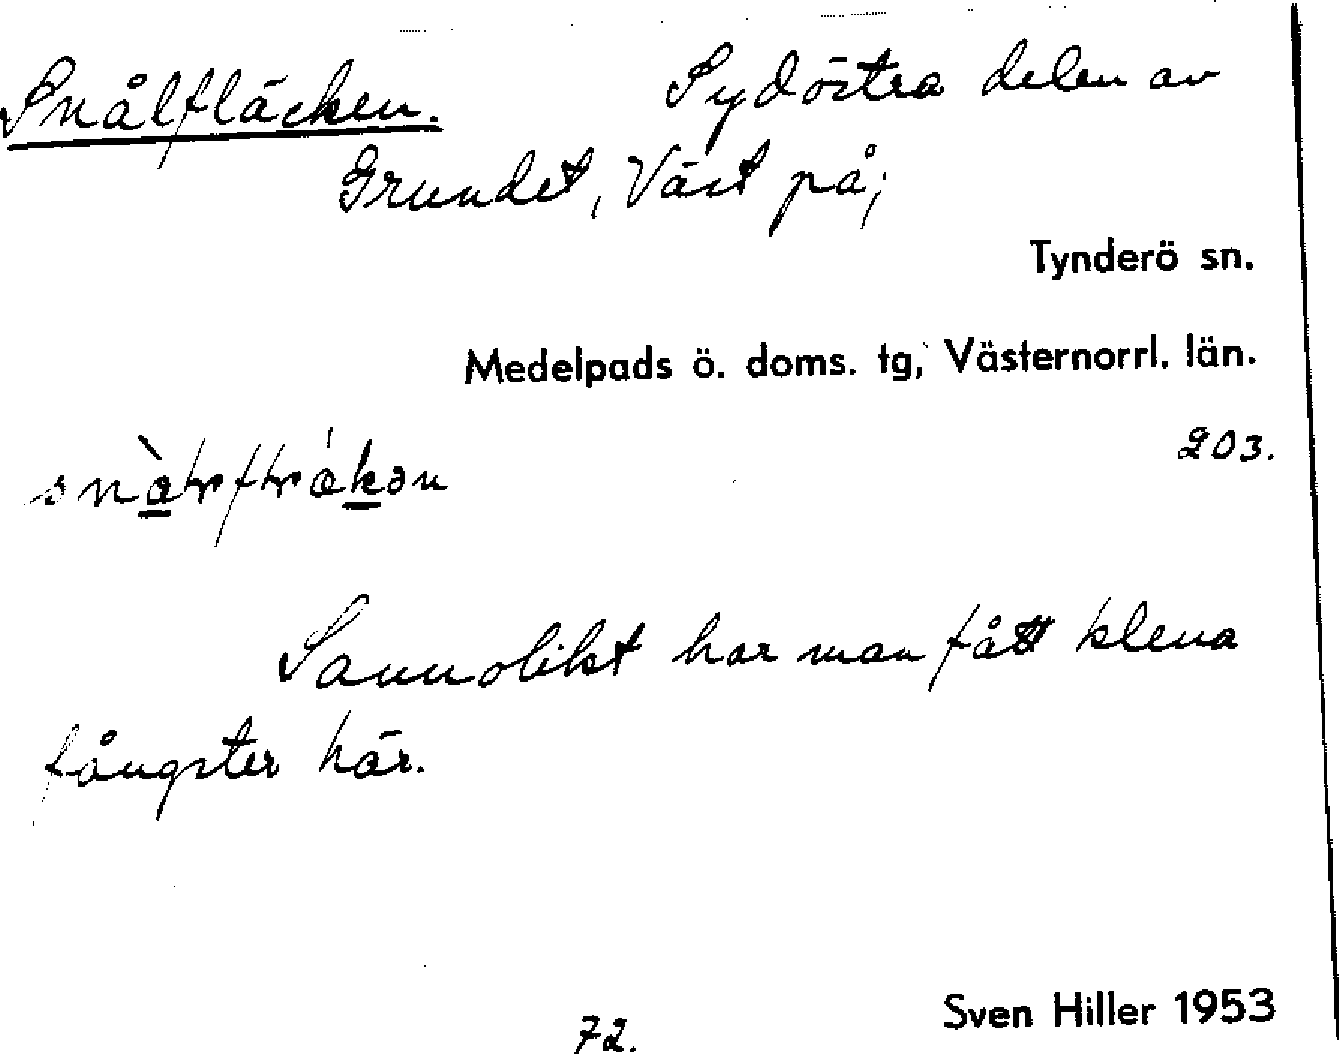 Snålfläcken. Sydöstra delen av
Grundet, Väst på;
Tynderö sn.
Medelpads ö. doms. tg, Västernorrl. län.
203.
Sannolikt har man fått klena
fångster här.
72.
Sven Hiller 1953